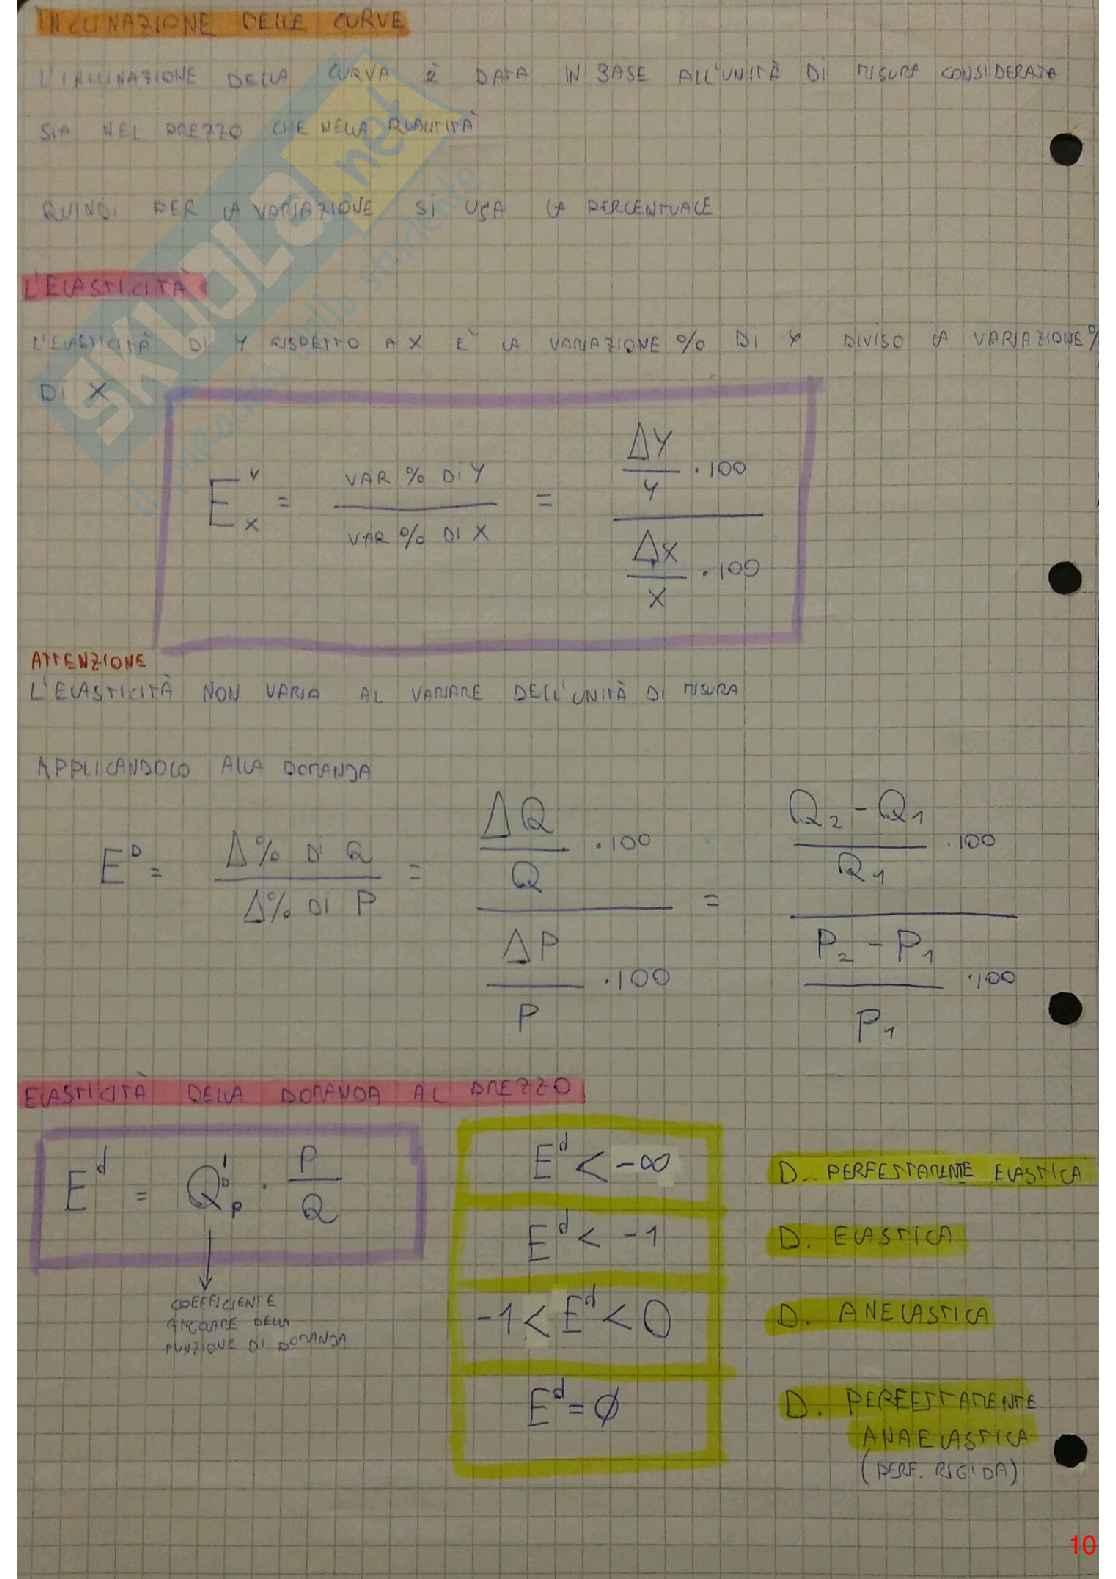 INCLINAZIONE DELLE CURVE
L'INCLINAZIONE DELLA CURVA È DATA IN BASE ALL'UNITÀ DI MISURA CONSIDERATA
SIA NEL PREZZO CHE NELLA QUANTITÀ
QUINDI PER LA VARIAZIONE SI USA LA PERCENTUALE
L'ELASTICITÀ
L'ELASTICITÀ DI Y RISPETTO A X È LA VARIAZIONE % DI Y DIVISO LA VARIAZIONE %
DI X
E^Y_X = VAR % DI Y / VAR % DI X = (ΔY/Y · 100) / (ΔX/X · 100)
ATTENZIONE
L'ELASTICITÀ NON VARIA AL VARIARE DELL'UNITÀ DI MISURA
APPLICANDOLO ALLA DOMANDA
E^D = Δ% DI Q / Δ% DI P = (ΔQ/Q · 100) / (ΔP/P · 100) = (Q2-Q1/Q1 · 100) / (P2-P1/P1 · 100)
ELASTICITÀ DELLA DOMANDA AL PREZZO
E^d = Q'^D_P · P/Q
COEFFICIENTE
ANGOLARE DELLA
FUNZIONE DI DOMANDA
E^d < -∞ D. PERFETTAMENTE ELASTICA
E^d < -1 D. ELASTICA
-1 < E^d < 0 D. ANELASTICA
E^d = ∅ D. PERFETTAMENTE
ANAELASTICA
(PERF. RIGIDA)
SKUOLA.net
10